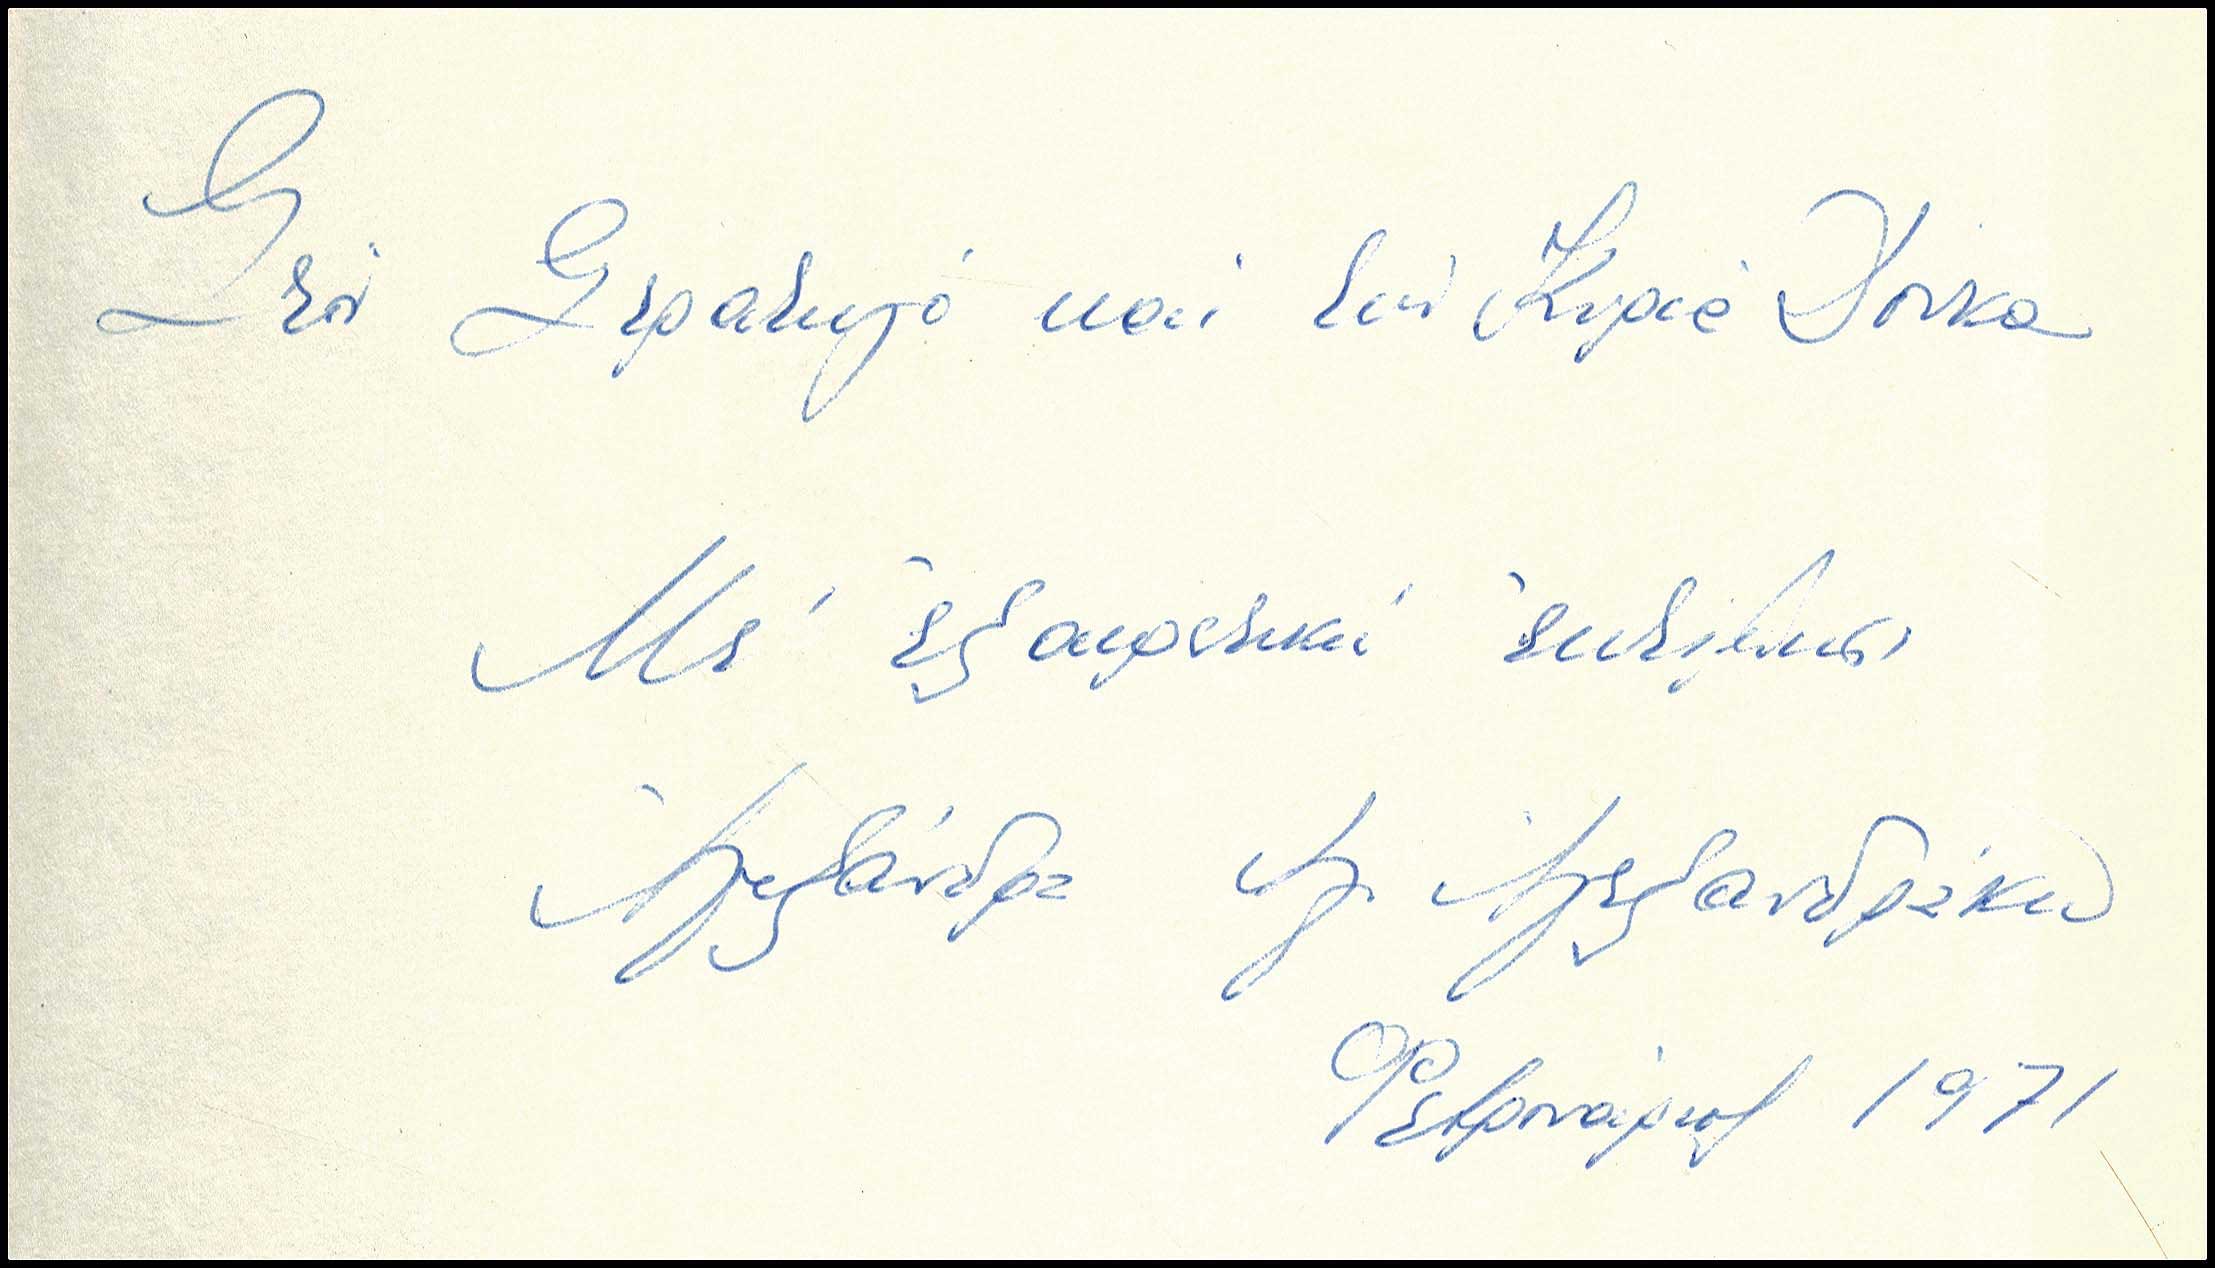 Στὸν Στρατηγό καί τήν Κυρία Δόνκα
Μέ ἐξαιρετική ἐκτίμηση
Ἀλεξάνδρα Ἀλ. Ἀλεξανδράκη
Φεβρουάριος 1971